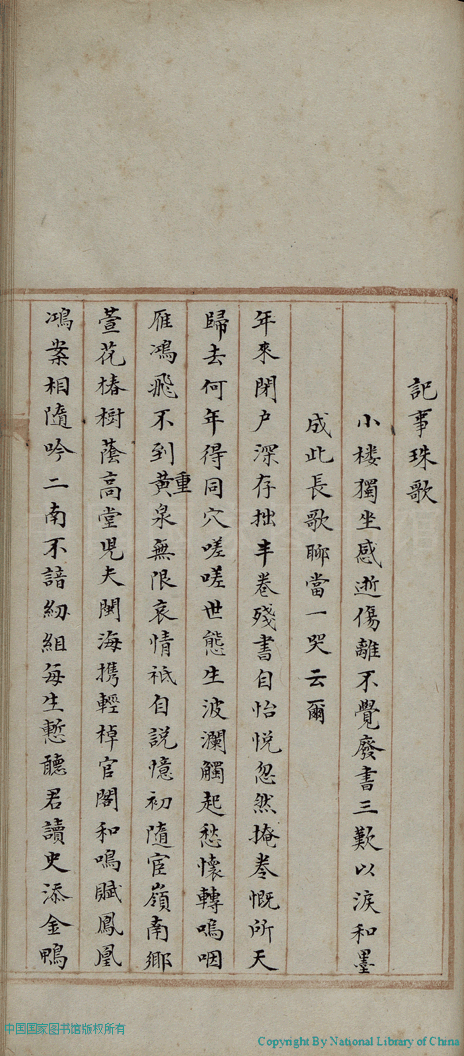 記事珠歌
小楼獨坐感逝傷離不覺廢書三歎以淚和墨
成此長歌聊當一哭云爾
年來閉戶深存拙半卷殘書自怡悦忽然掩卷慨所天
歸去何年得同穴嗟嗟世態生波瀾觸起愁懷轉嗚咽
雁鴻飛不到黃重泉無限哀情祗自説憶初隨宦嶺南鄉
萱花椿樹蔭高堂児夫閩海携輕棹官閣和鳴賦鳳凰
鴻案相隨吟二南不諳紉組每生慙聽君讀史添金鴨
中国国家图书馆版权所有
Copyright By National Library of China